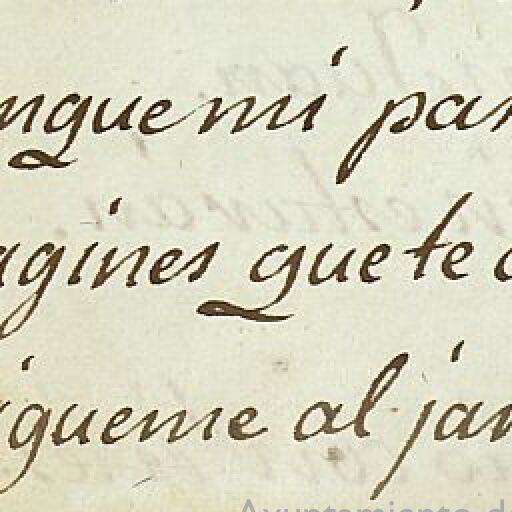 nque mi par
agines que te
igueme al jar
Ayuntamiento de